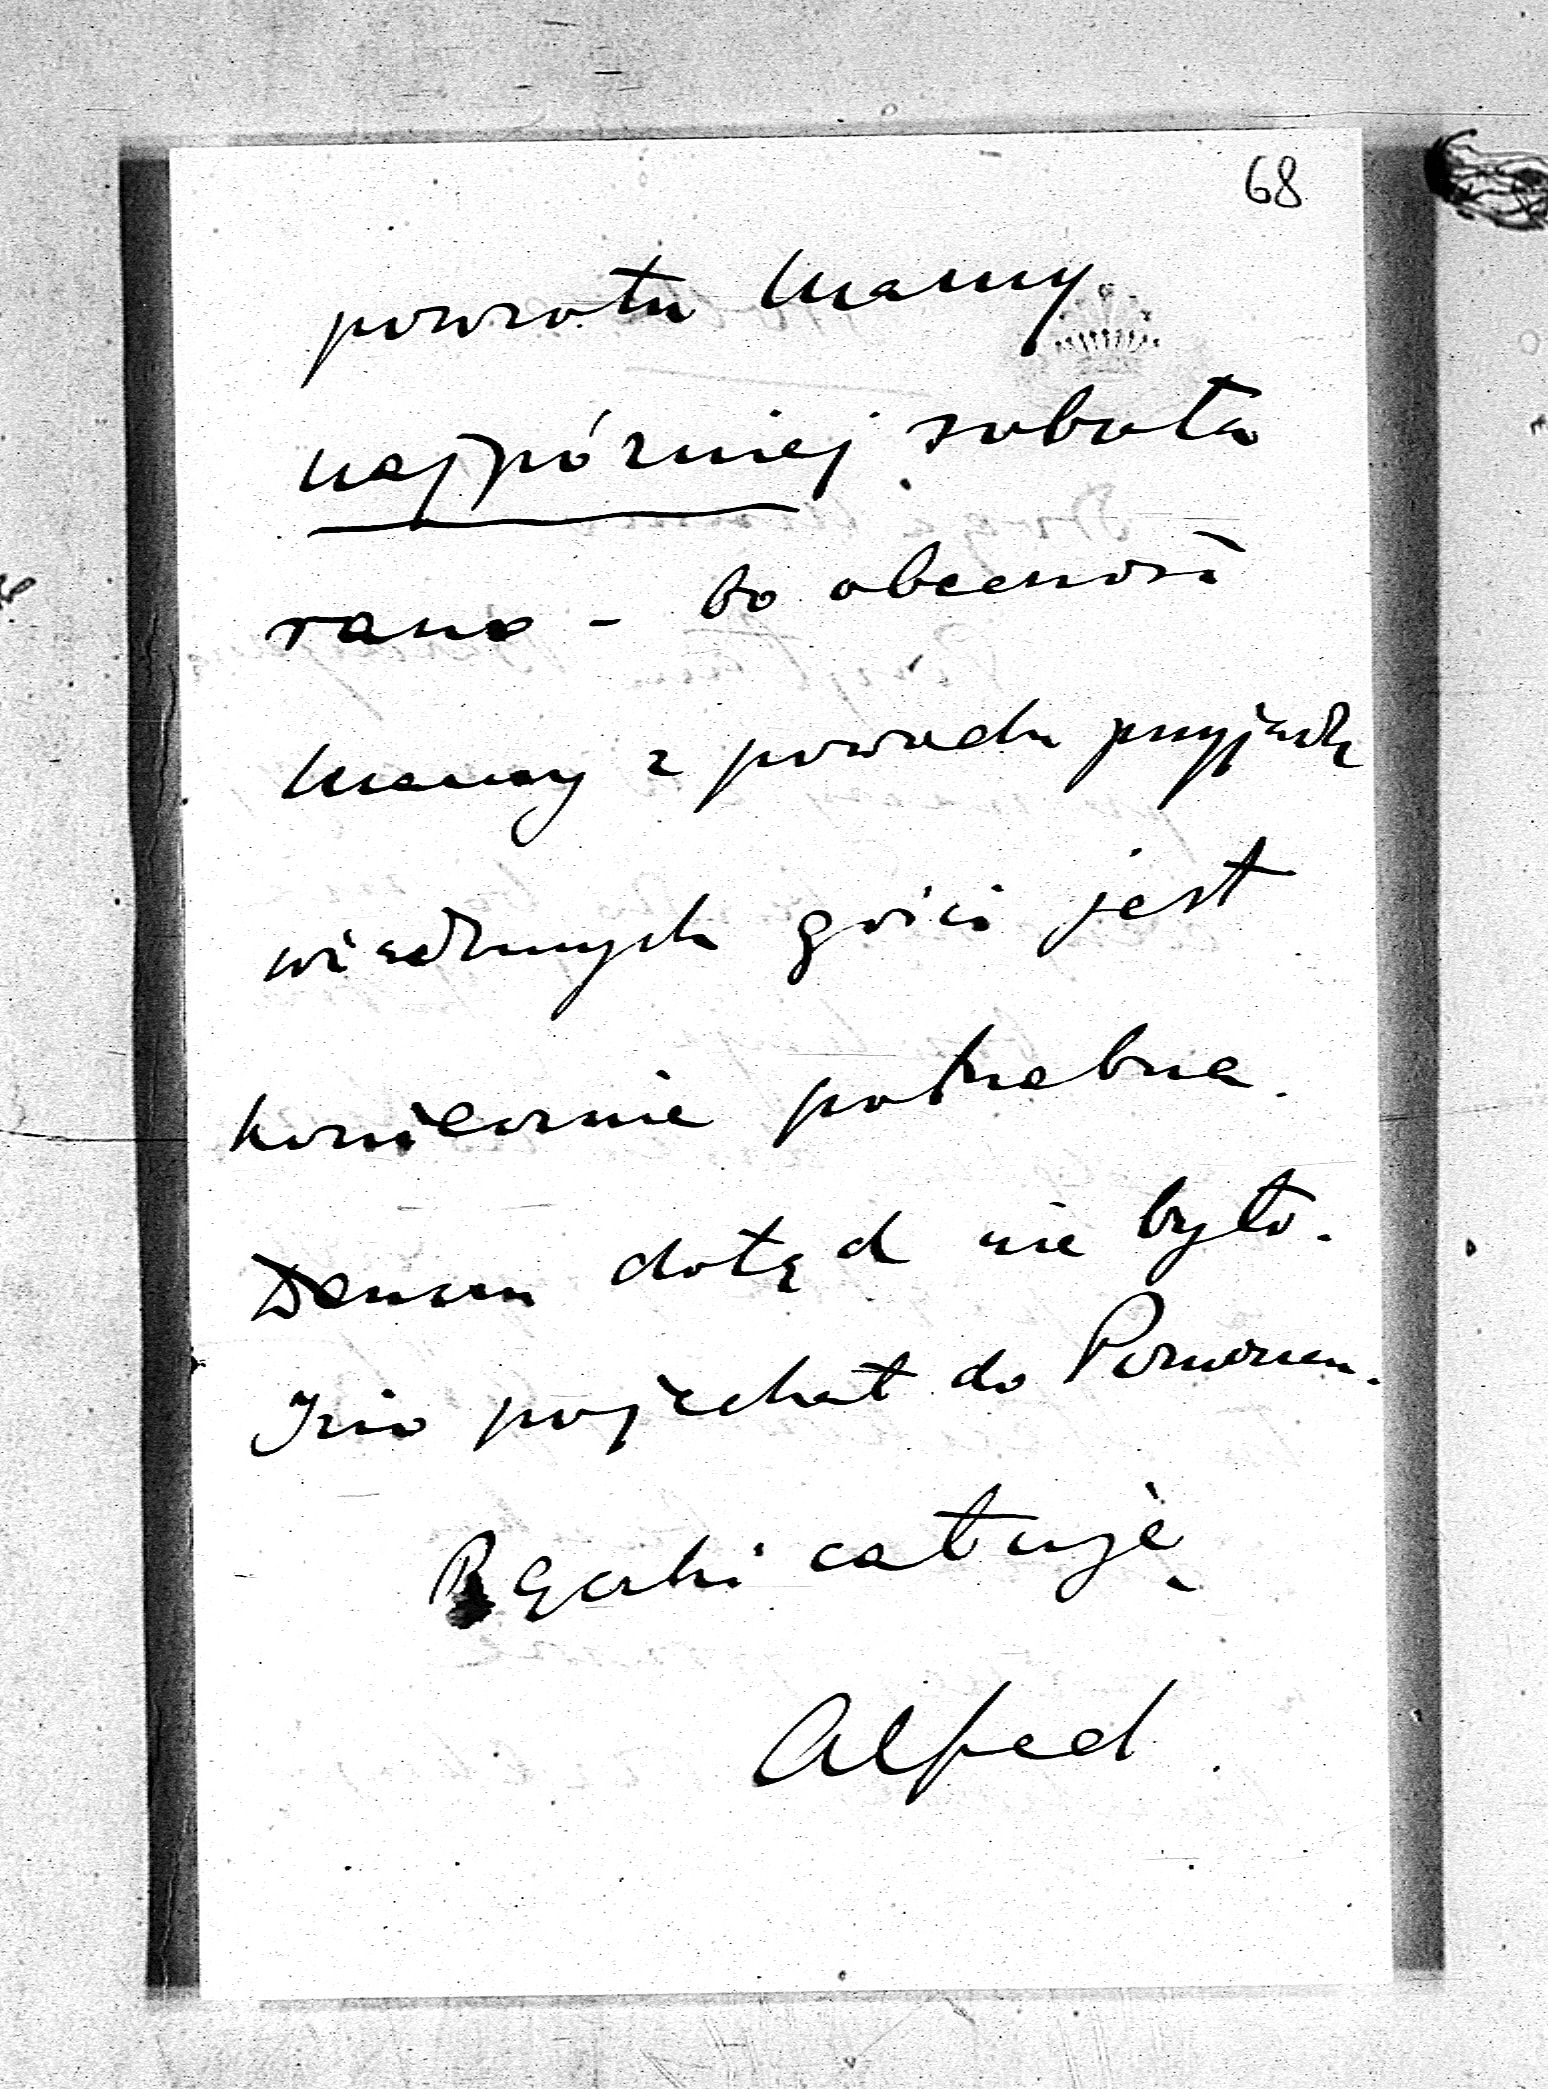 68
powrotu Mamy
najpóźniej sobota
rano - bo obecność
Mamy z powodu przyjazdu
wiadomych gości jest
koniecznie potrzebna.
dotąd nie było.
pojechał do Poznania.
Rączki całuję
Alfred